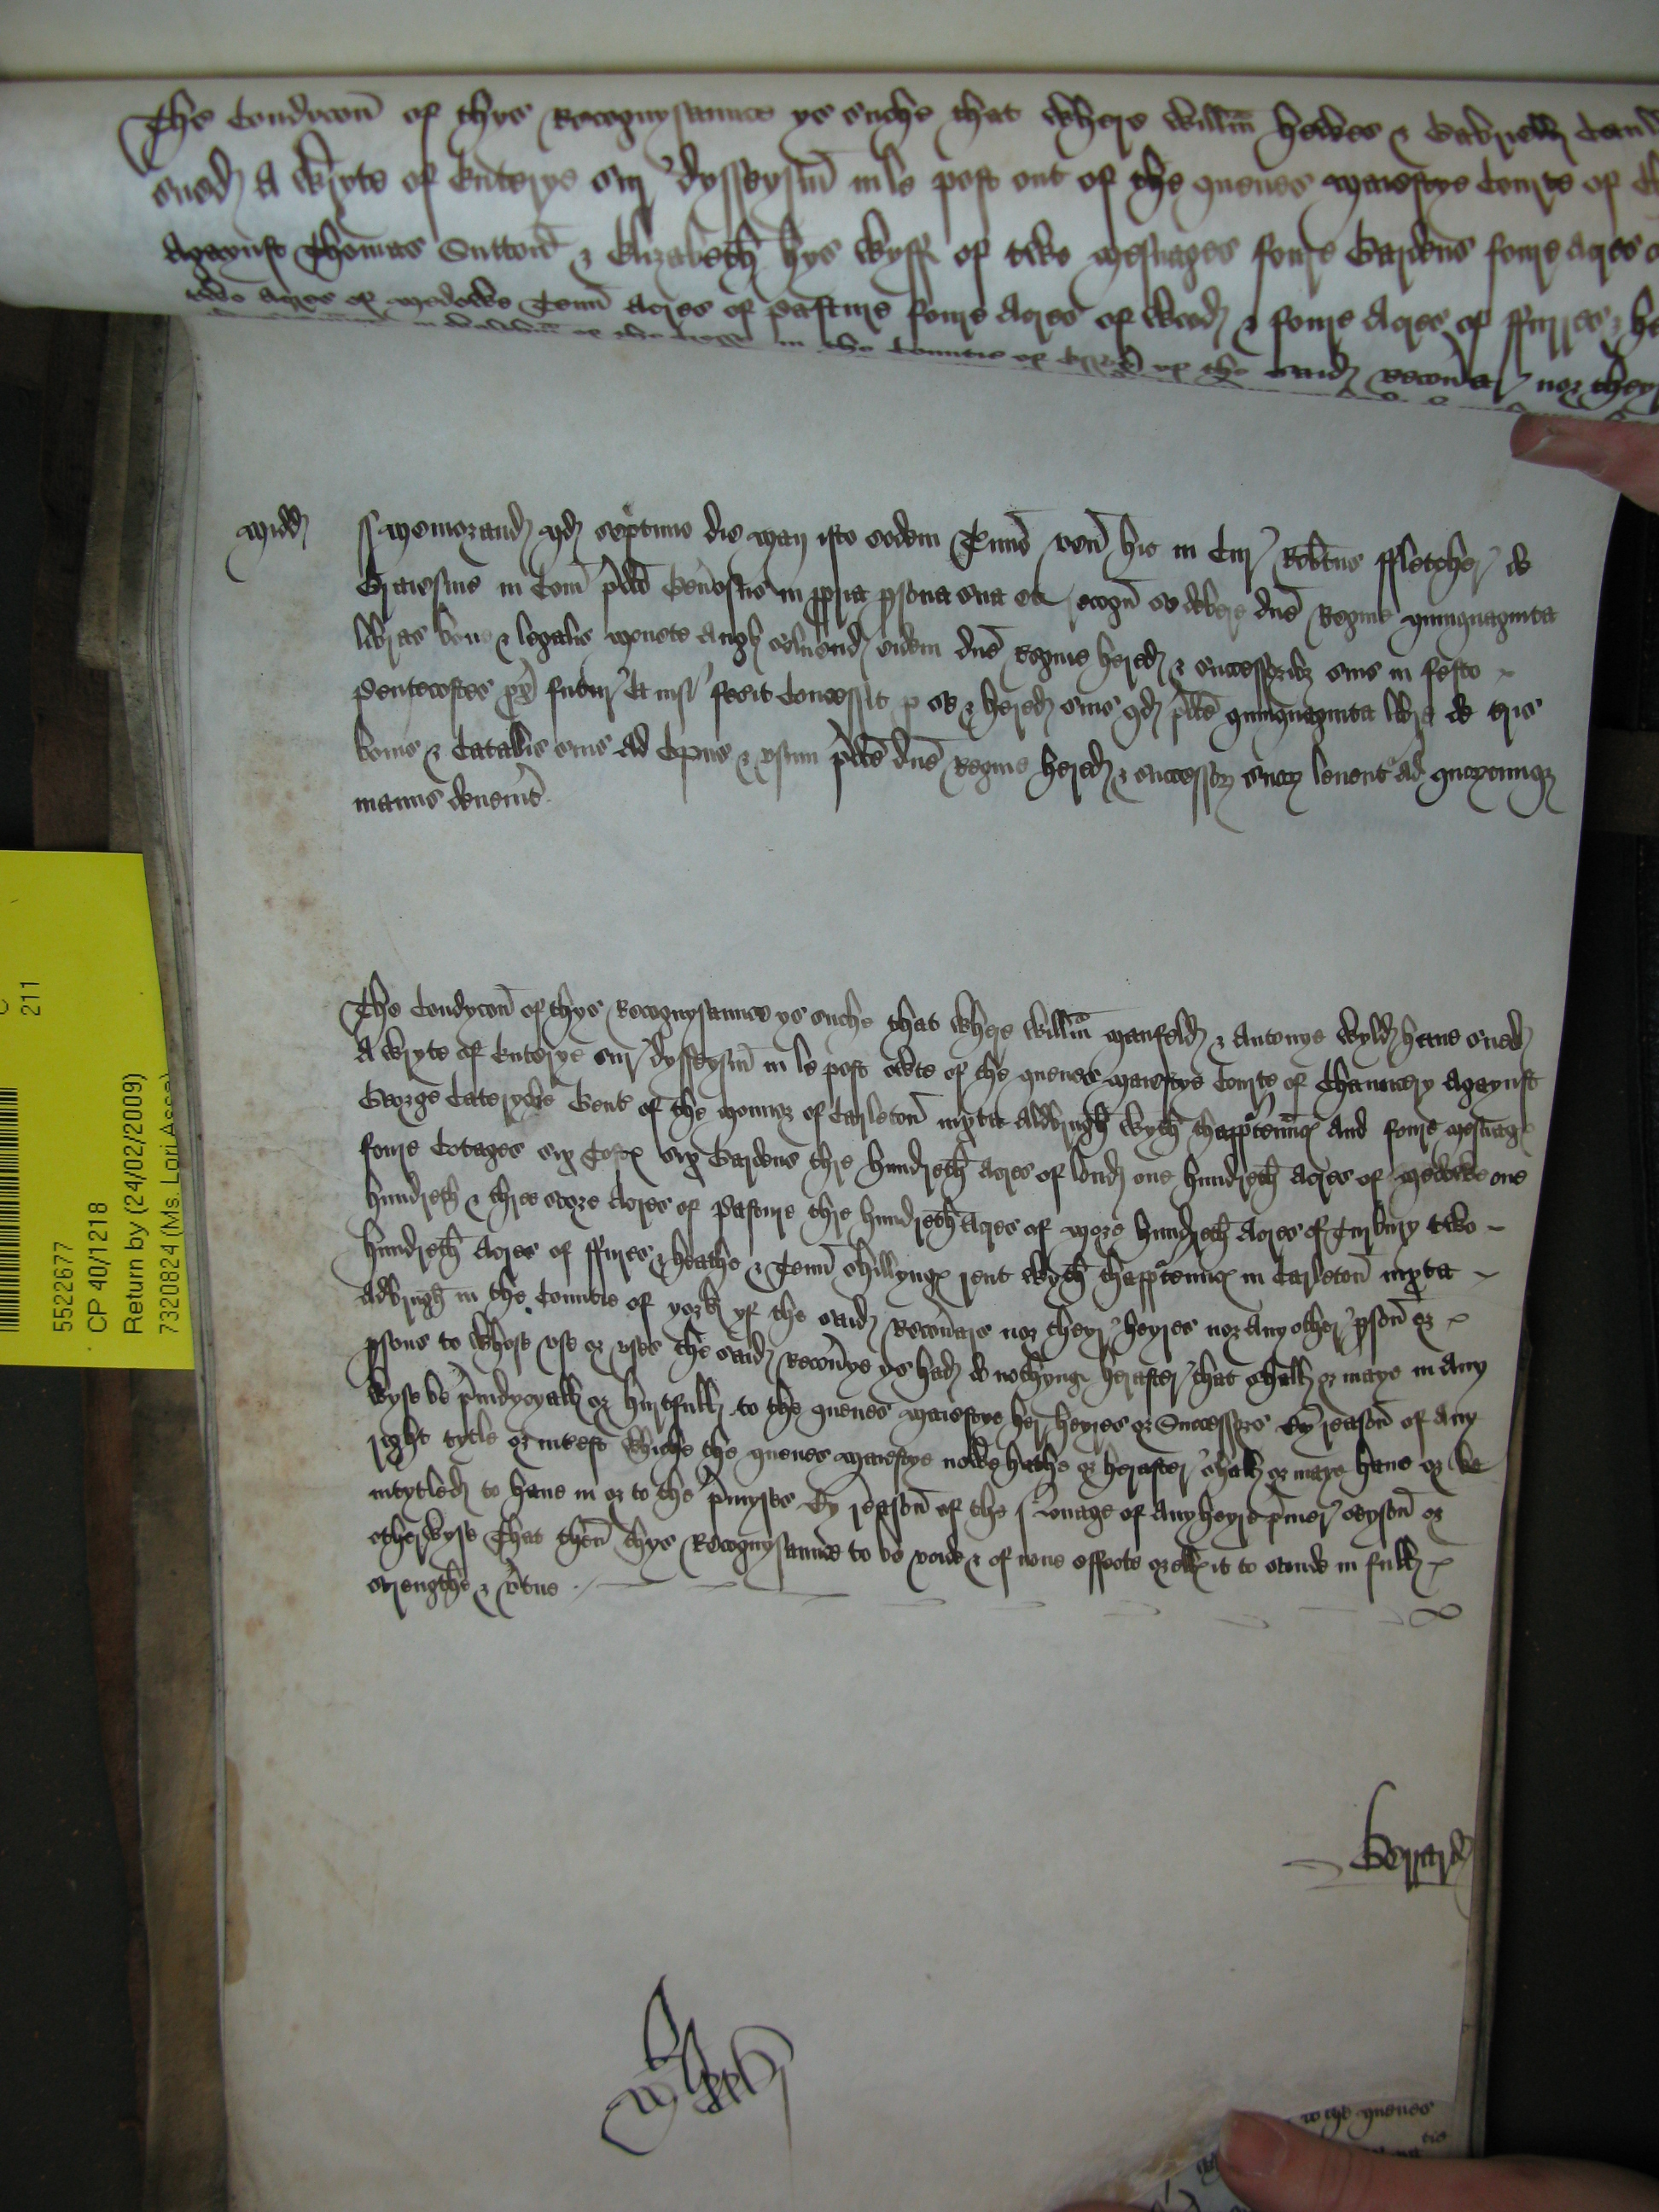 The Condycoñ of thys Recognysaunce ys suche that where Willm̃ Hewes & Gabriell
sued A wryte of Enterye sur dysseysin in le post out of the quenes maiestye Courte of
Agaynst Thomas Suttoñ & Elizabeth hys wyff of two mesuages foure Gardens foure acres
two acres of medowe Tenn acres of pasture foure acres of wood & foure acres of ffurres &
in the Countie of yf the said nor they
Midd
ss Memorand qd septimo die Maij isto eodem Tmio veñ hic in Cur Robtus ffletcher de
Graiesine in Com p̃dc̃o Gen̾osus in ppria psona sua et recogn se debere dñe Regine quinquaginta
libras bone & legalis monete Angl solvend eidem dñe Regine hered & successoribz suis in festo
Pentecostes px̃ futur Et nisi fecit concessit p se & hered suis qd p̃dc̃e quinquaginta libre de tris
bonis & Catallis suis ad opus & usum p̃dc̃e dñe Regine hered & successorz suorz levent ad quorumcumqz
manus devenint
The Condycoñ of thys Recognysaunce ys suche that where Willm̃ Manfeld & Antonye Wyld have sued
A wryte of Enterye sur dysseysin in le post owte of the quenes maiestye Courte of Chauncery Agaynst
George Cateryke Gent of the mannor of Carletoñ iuxta Aldbrugh wyth thapptenncs And foure mesuags
foure Cotages six Tofts six Gardens thre hundreth Acres of lond one hundreth Acres of medowe one
hundreth & three score Acres of Pasture thre hundreth Acres of more hundreth Acres of Turbury two
hundreth Acres of ffurres & heathe & Tenn shillyngs rent wyth thapptenncs in Carletoñ iuxta
Adbrugh in the Countie of york yf the said Recov̾ares nor theyr heyres nor Any other psoñ or
psons to whose vse or vses the said Recov̾ye ys had do nothyng herafter that shall or maye in Any
wyse be p̾iudycyall or hurtfull to the quenes maiestye her heyres or Successors By reasoñ of Any
ryght tytle or int̾est whiche the quenes maiestye nowe hathe or herafter shall or maye have or be
intytled to have in or to the p̾myses By reasoñ of the nonage of Any heyre p̾mer seysoñ or
otherwyse That theñ thys Recognysaunce to be voide & of none effecte or ells it to stonde in full
strengthe & v̾tue
Gerrard
5522677
CP 40/1218
Return by (24/02/2009)
7320824 (Ms. Lori Asse
211
to the quenes